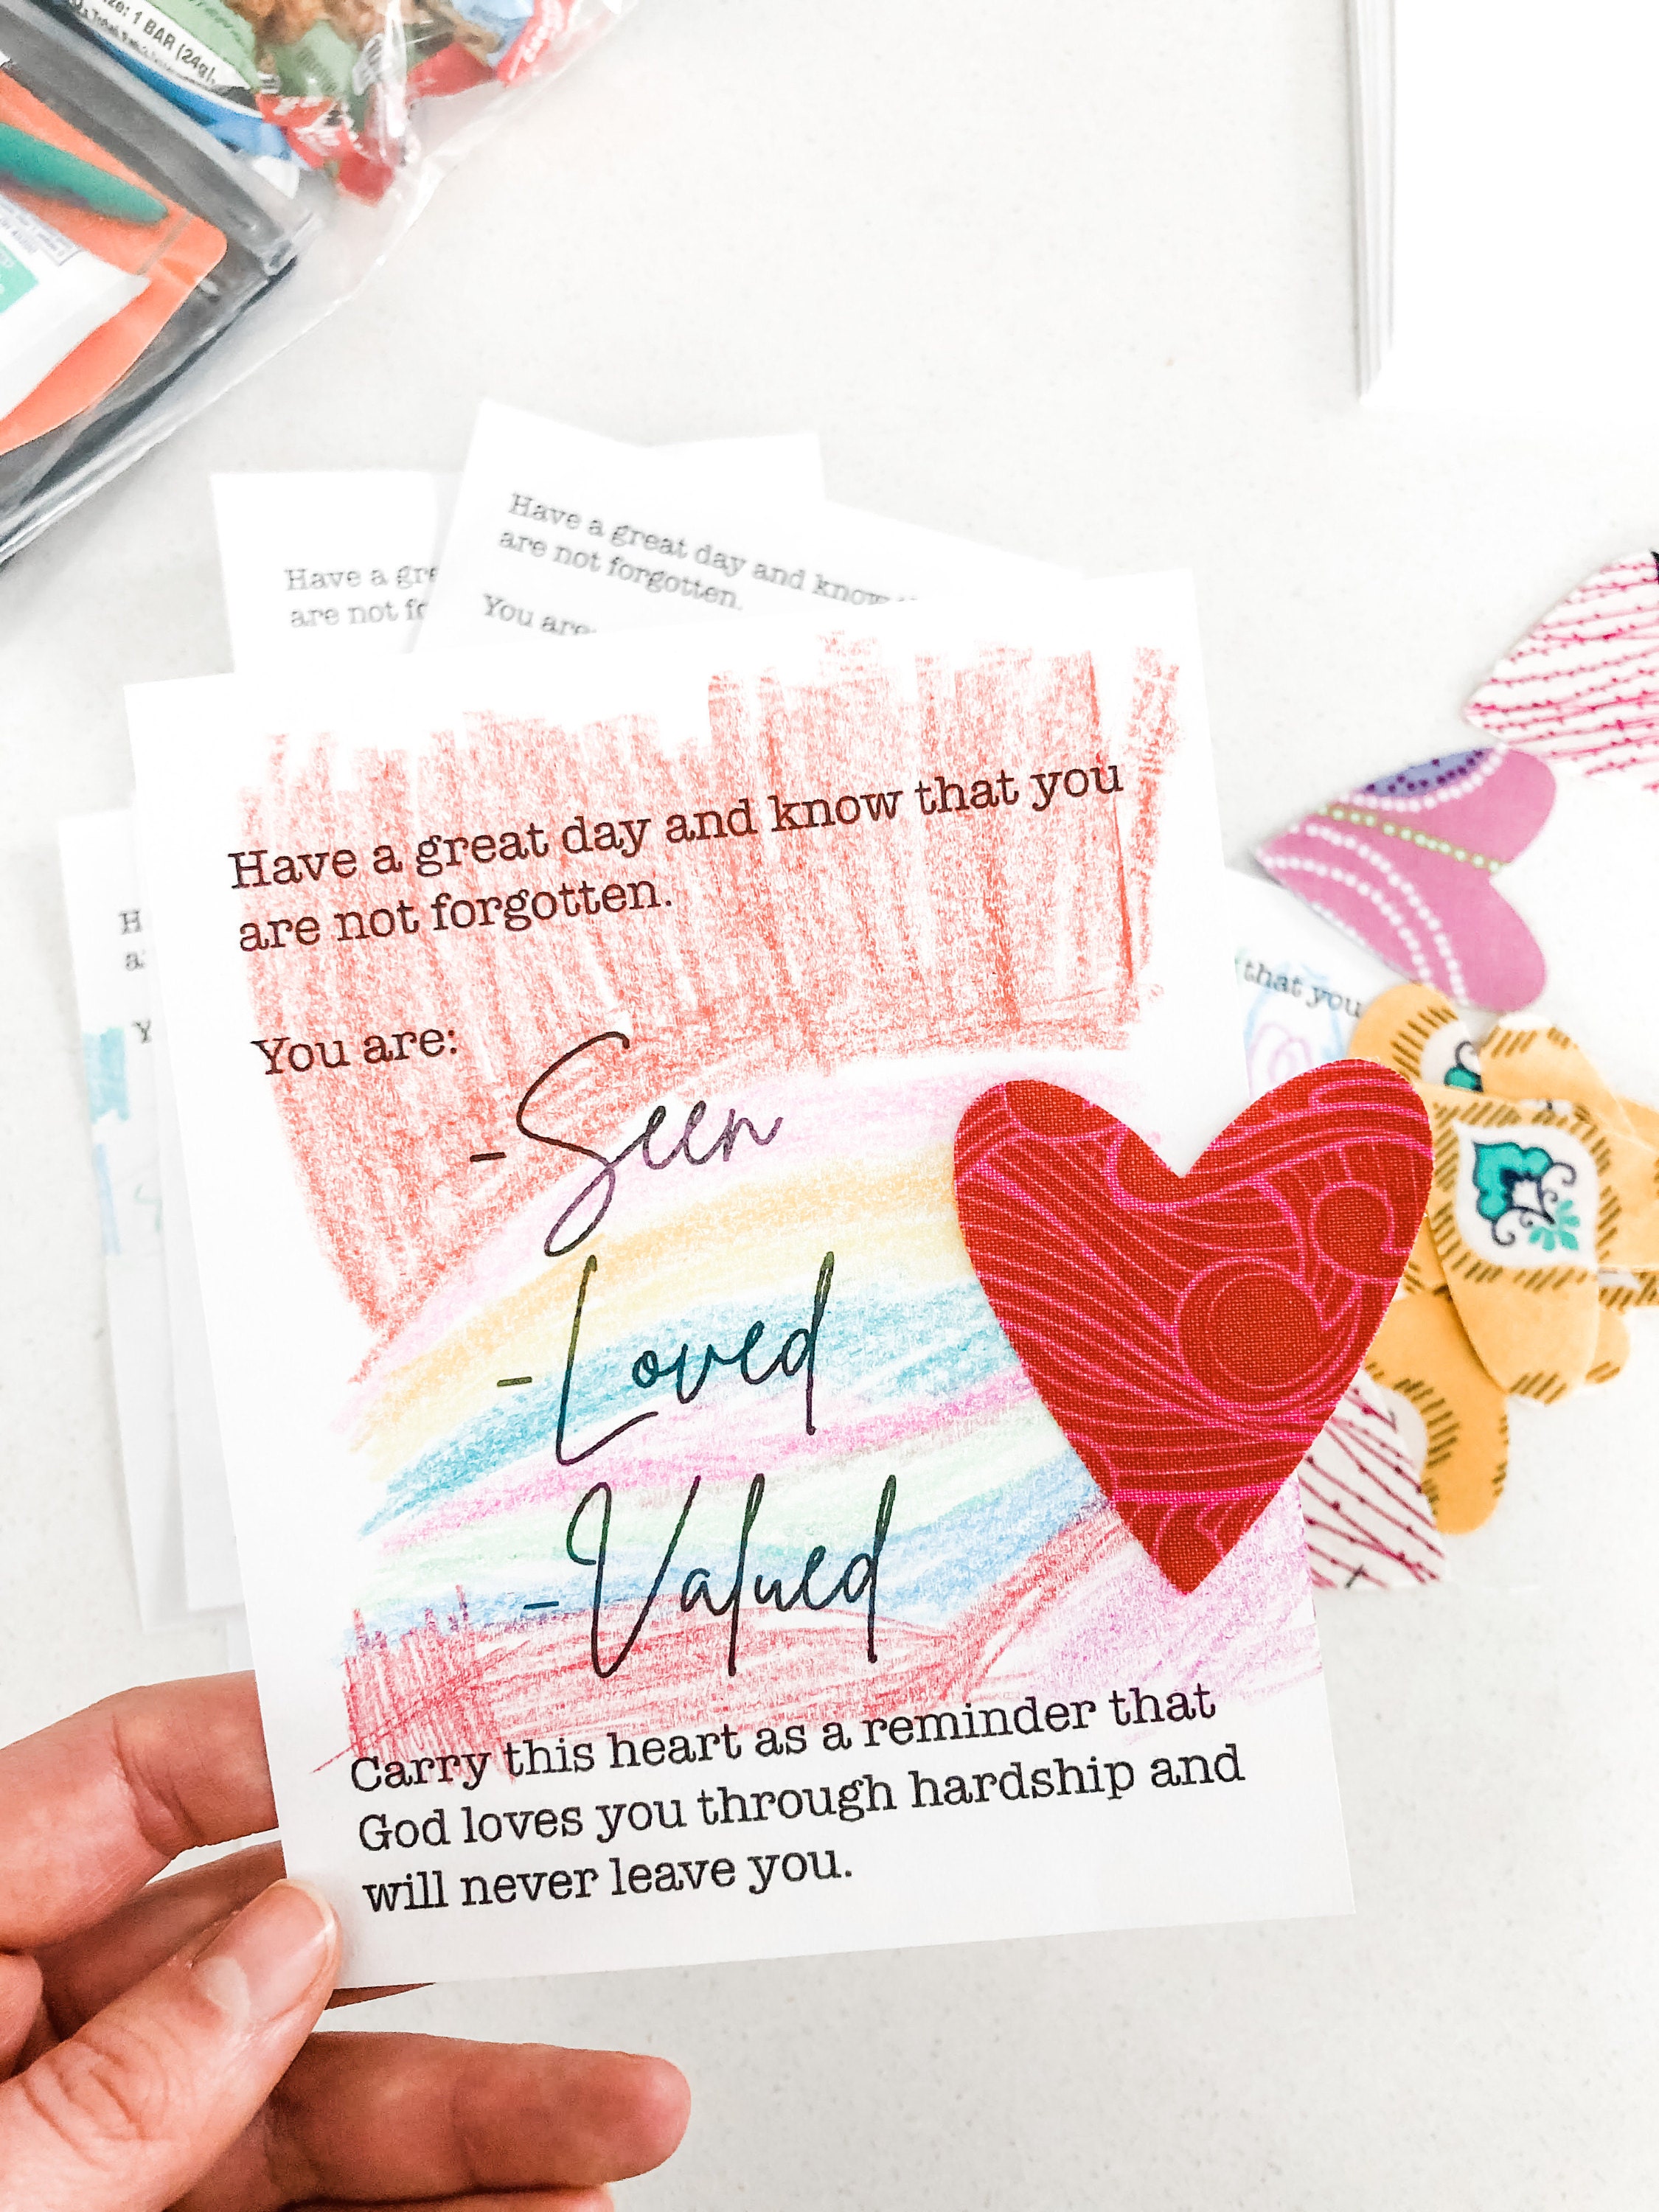 1 BAR (24g),
Have a
are not
Have a great day and know
are not forgotten.
You are
Have a great day and know that you
are not forgotten.
You are:
-Seen
-Loved
-Valued
Carry this heart as a reminder that
God loves you through hardship and
will never leave you.
that you